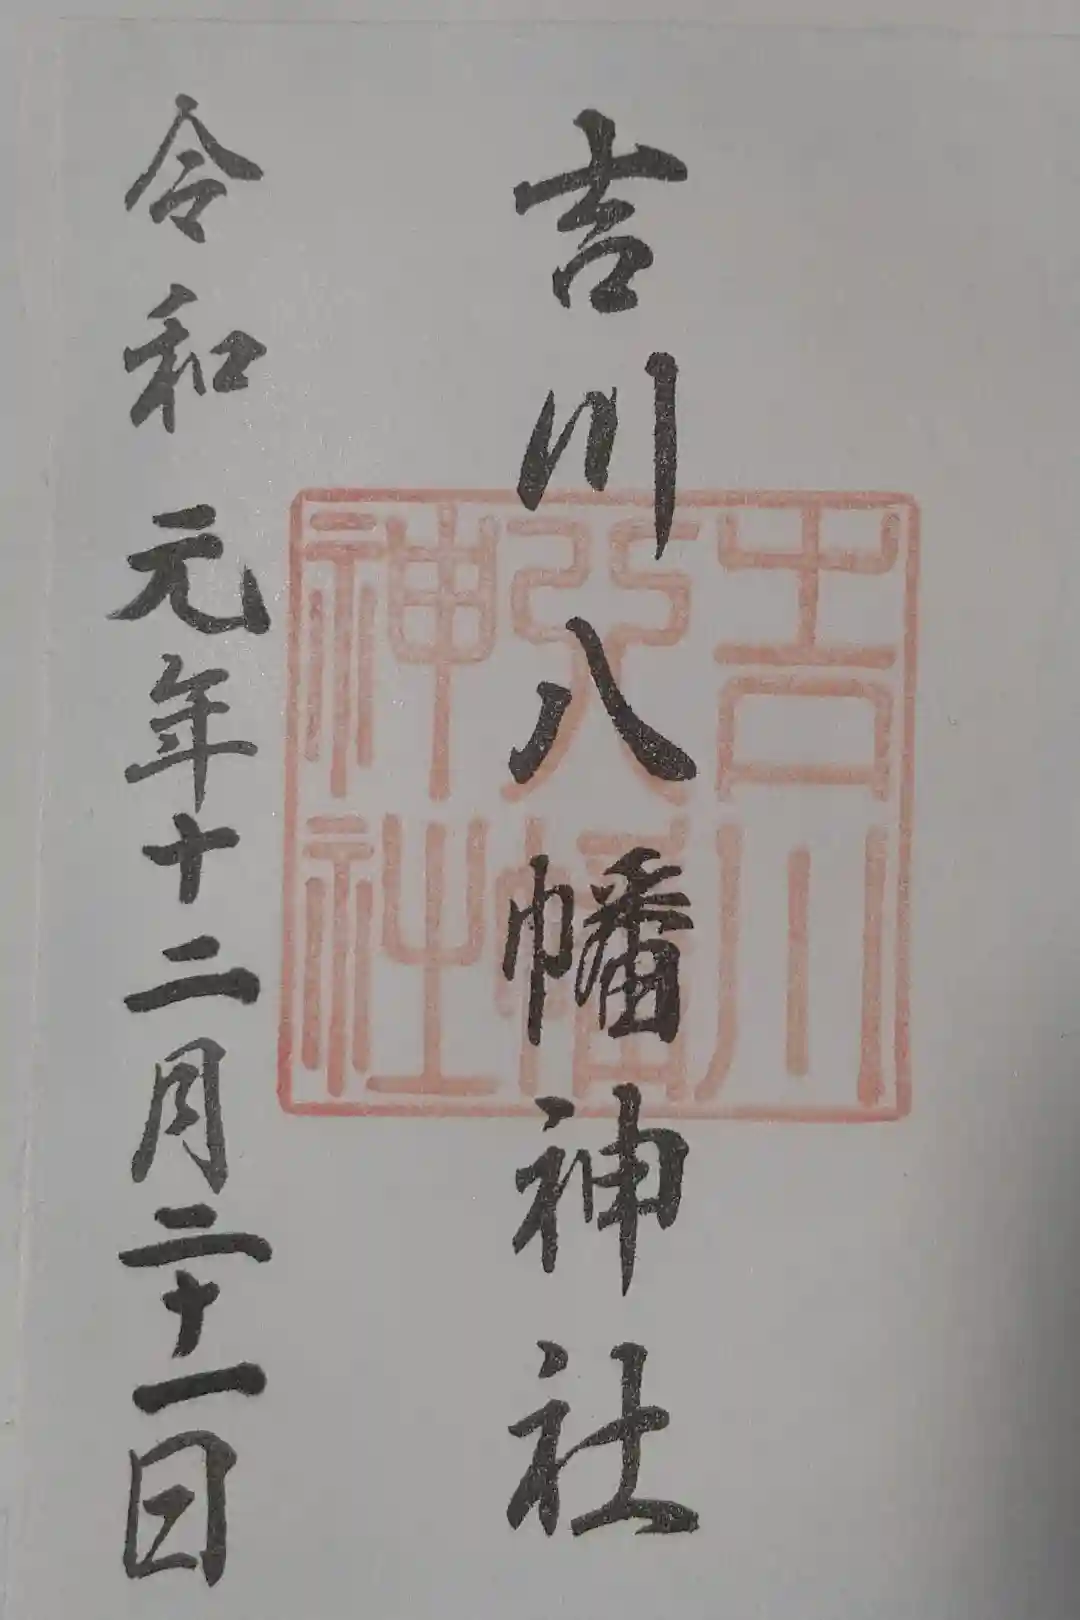 吉川八幡神社
吉川
八幡
神社
令和元年十二月二十一日